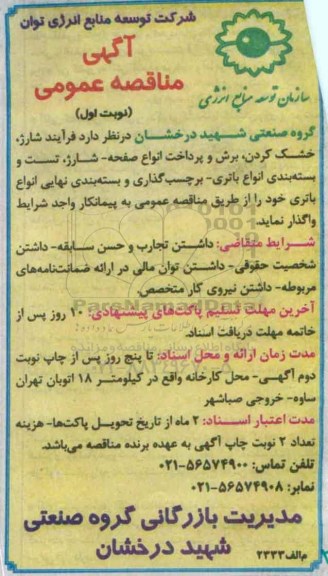 شرکت توسعه منابع انرژی توان
آگهی
مناقصه عمومی
(نوبت اول)
سازمان توسعه منابع انرژی
گروه صنعتی شهید درخشان درنظر دارد فرآیند شارژ،
خشک کردن، برش و پرداخت انواع صفحه- شارژ، تست و
بسته‌بندی انواع باتری- برچسب‌گذاری و بسته‌بندی نهایی انواع
باتری خود را از طریق مناقصه عمومی به پیمانکار واجد شرایط
واگذار نماید.
شرایط متقاضی: داشتن تجارب و حسن سابقه- داشتن
شخصیت حقوقی- داشتن توان مالی در ارائه ضمانت‌نامه‌های
مربوطه- داشتن نیروی کار متخصص.
آخرین مهلت تسلیم پاکت‌های پیشنهادی: ۱۰ روز پس از
خاتمه مهلت دریافت اسناد.
مدت زمان ارائه و محل اسناد: تا پنج روز پس از چاپ نوبت
دوم آگهی- محل کارخانه واقع در کیلومتر ۱۸ اتوبان تهران
ساوه- خروجی صباشهر
مدت اعتبار اسناد: ۲ ماه از تاریخ تحویل پاکت‌ها- هزینه
تعداد ۲ نوبت چاپ آگهی به عهده برنده مناقصه می‌باشد.
تلفن تماس: ۵۶۵۷۴۹۰۰-۰۲۱
نمابر: ۵۶۵۷۴۹۰۸-۰۲۱
مدیریت بازرگانی گروه صنعتی
شهید درخشان
م‌الف۲۳۳۳